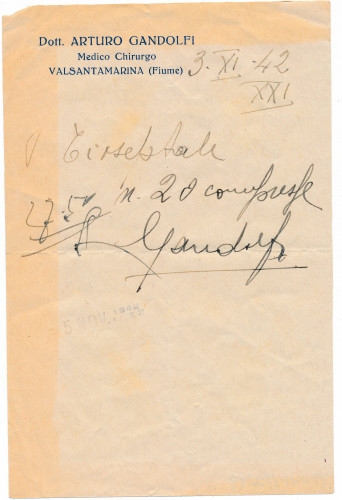 Dott. ARTURO GANDOLFI
Medico Chirurgo
VALSANTAMARINA (Fiume)
3·XI·42
XXI
n. 20 compresse
Gandolfi
5 NOV.